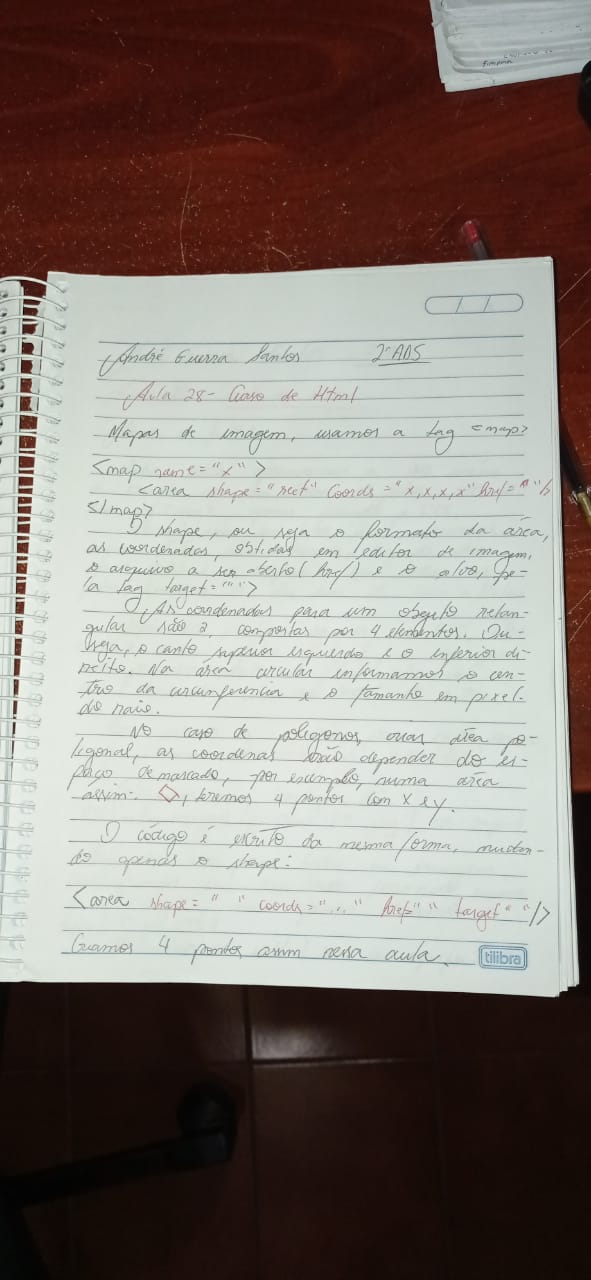 André Guerra Santos 2º ADS
Aula 28 - Curso de Html
Mapas de imagem, usamos a tag <map>
<map name="x">
<area shape="rect" Coords="x,x,x,x" href=" "/>
</map>
O shape, ou seja o formato da área,
as coordenadas, obtidas em editor de imagem,
o arquivo a ser aberto (href) e o alvo, pe-
la tag target=" ">
As coordenadas para um objeto retan-
gular são 2, compostas por 4 elementos. Ou
seja, o canto superior esquerdo e o inferior di-
reito. Na área circular informamos o cen-
tro da circunferencia e o tamanho em pixel
do raio.
No caso de poligonos, área po-
ligonal, as coordenas irão depender do es-
paço demarcado, por exemplo, numa área
assim: , teremos 4 pontos com x e y.
O código é escrito da mesma forma, mudan-
do apenas o shape:
<area shape=" " coords="..." href=" " target=" "/>
Criamos 4 pontos assim nessa aula.
tilibra